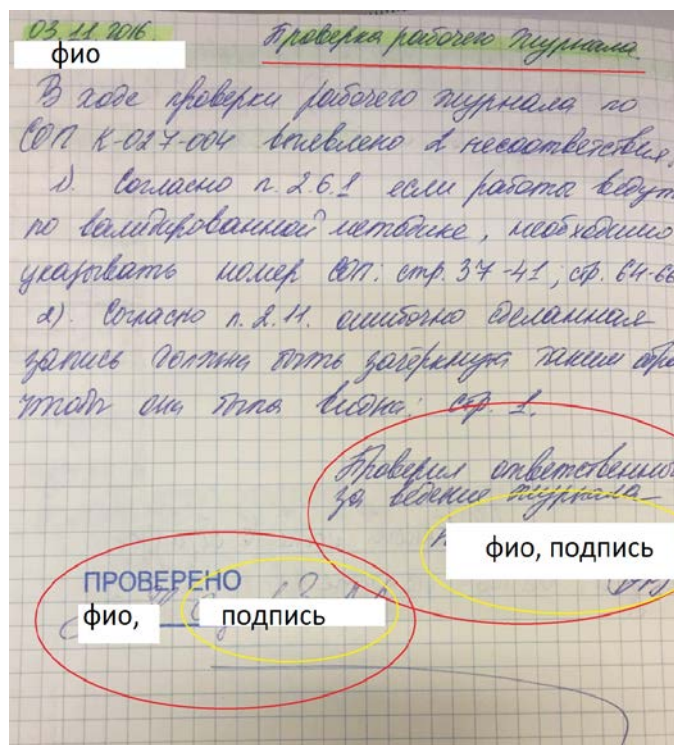 03.11.2016. Проверка рабочего журнала.
фио
В ходе проверки рабочего журнала по
СОП К-027-004 выявлено 2 несоответствия.
1). Согласно п. 2.6.1 если работы ведут
по валидированной методике, необходимо
указывать номер СОП: стр. 37-41; стр. 64-66
2). Согласно п. 2.11. ошибочно сделанная
запись должна быть зачёркнута таким обра
чтобы она была видна: стр. 1.
Проверил ответственный
за ведение журнала
фио, подпись
ПРОВЕРЕНО
фио, подпись